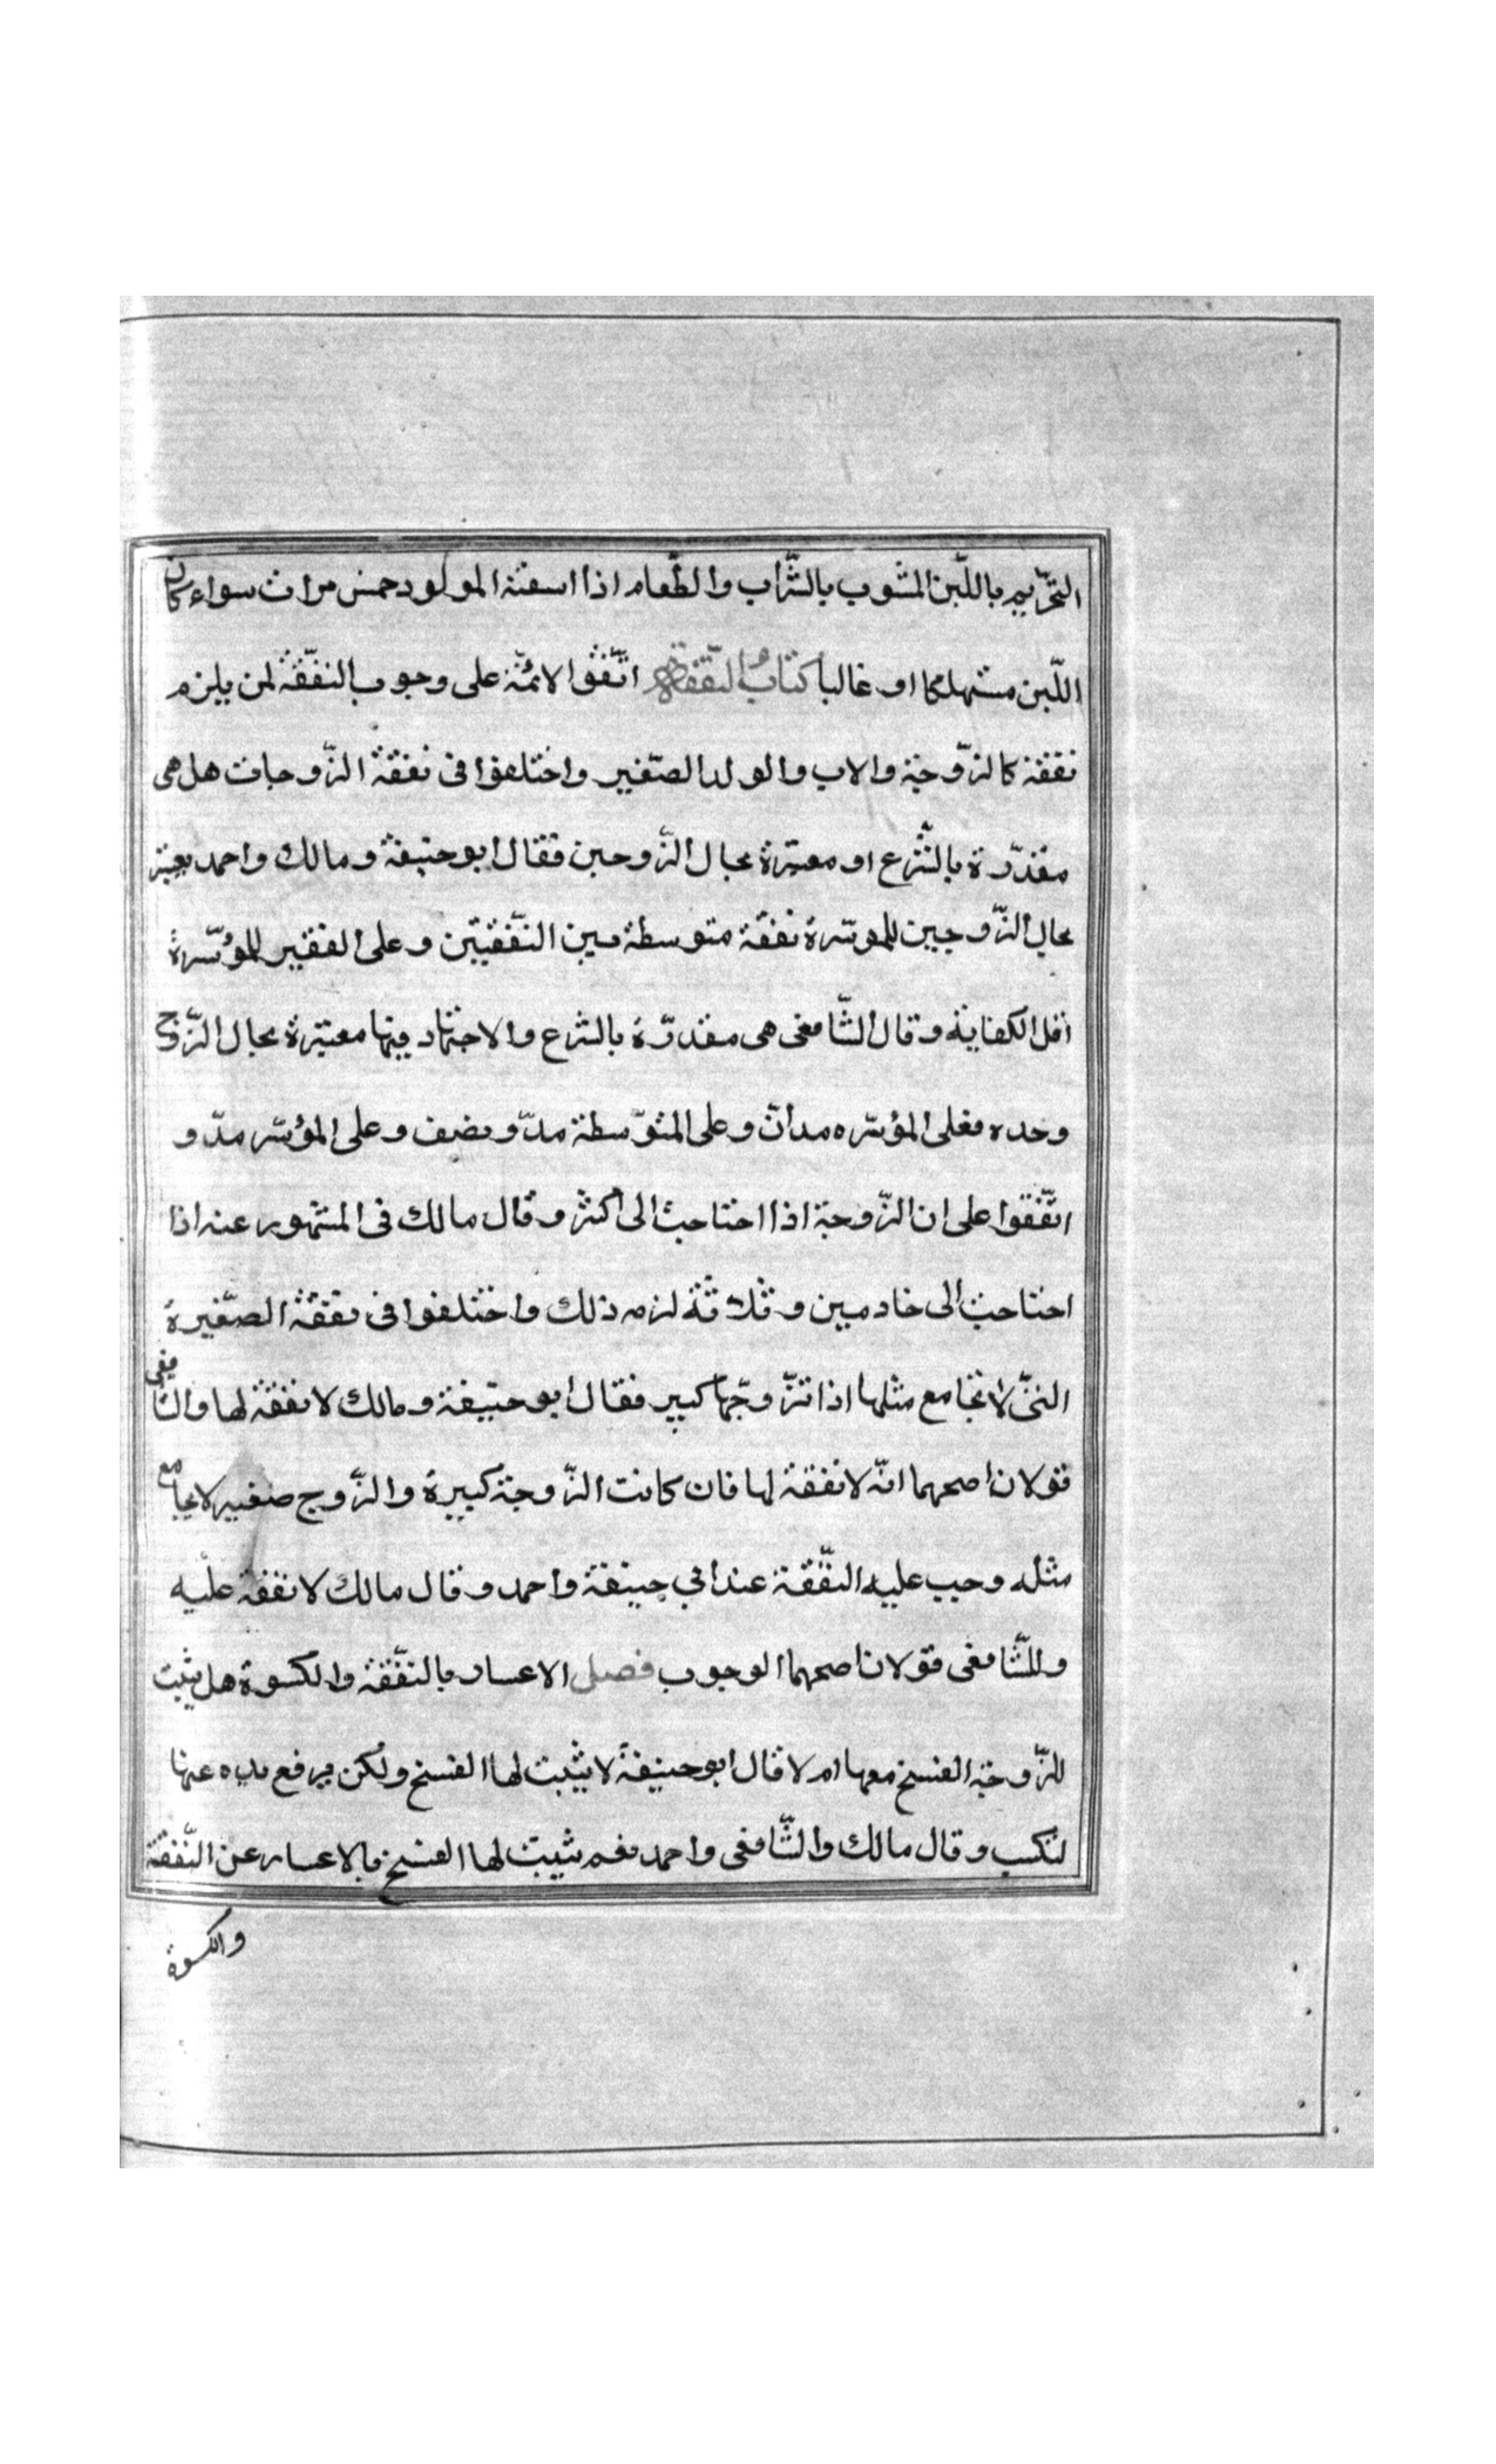 التحّريم باللّبن المشوب بالشّراب والطّعام اذا اسقته المولود خمس مرات سواء كان
اللّبن مستهلكا او غالبا كتاب النّفقة اتّفقوا الائمّة على وجوب النفّقة لمن يلزم
نفقة كالزّوجة والاب والولد الصّغير واختلفوا فى نفقة الزّوجات هل هى
مقدّرة بالشّرع او معتبرة بحال الزّوجين فقال ابو حنيفة ومالك واحمد يعتبر
بحال الزّوجين للموسّرة نفقة متوسطة بين النّفقتين وعلى الفقير للموسّرة
اقل الكفاية وقال الشّافعى هى مقدّرة بالشرع والاجتهاد فيها معتبرة بحال الزّوج
وحده فعلى المؤسّره مدانّ وعلى المتوّسطة مدّ ونصف وعلى المؤسّر مدّ و
اتّفقوا على ان الزّوجة اذا احتاجت الى اكثر وقال مالك فى المشهور عنه اذا
احتاجت الى خادمين وثلاثة لزمه ذلك واختلفوا فى نفقة الصّغيرة
التىّ لا تجامع مثلها اذا تزّوجّها كبير فقال ابو حنيفة ومالك لا نفقة لها والشافعى
قولان اصحهما انّه لا نفقة لها فان كانت الزّوجة كبيرة والزّوج صغير لا يجامع
مثله وجب عليه النّفقة عند ابي حنيفة واحمد وقال مالك لا نفقة عليه
وللشّافعى قولان اصحهما الوجوب فصل الاعسار بالنفّقة والكسوة هل يثبت
للزّوجة الفسخ معها ام لا قال ابو حنيفة لا يثبت لها الفسخ ولكن يرفع يده عنها
لتكسب وقال مالك والشّافعى واحمد نعم يثبت لها الفسخ بالاعسار عن النّفقة
والكسوة